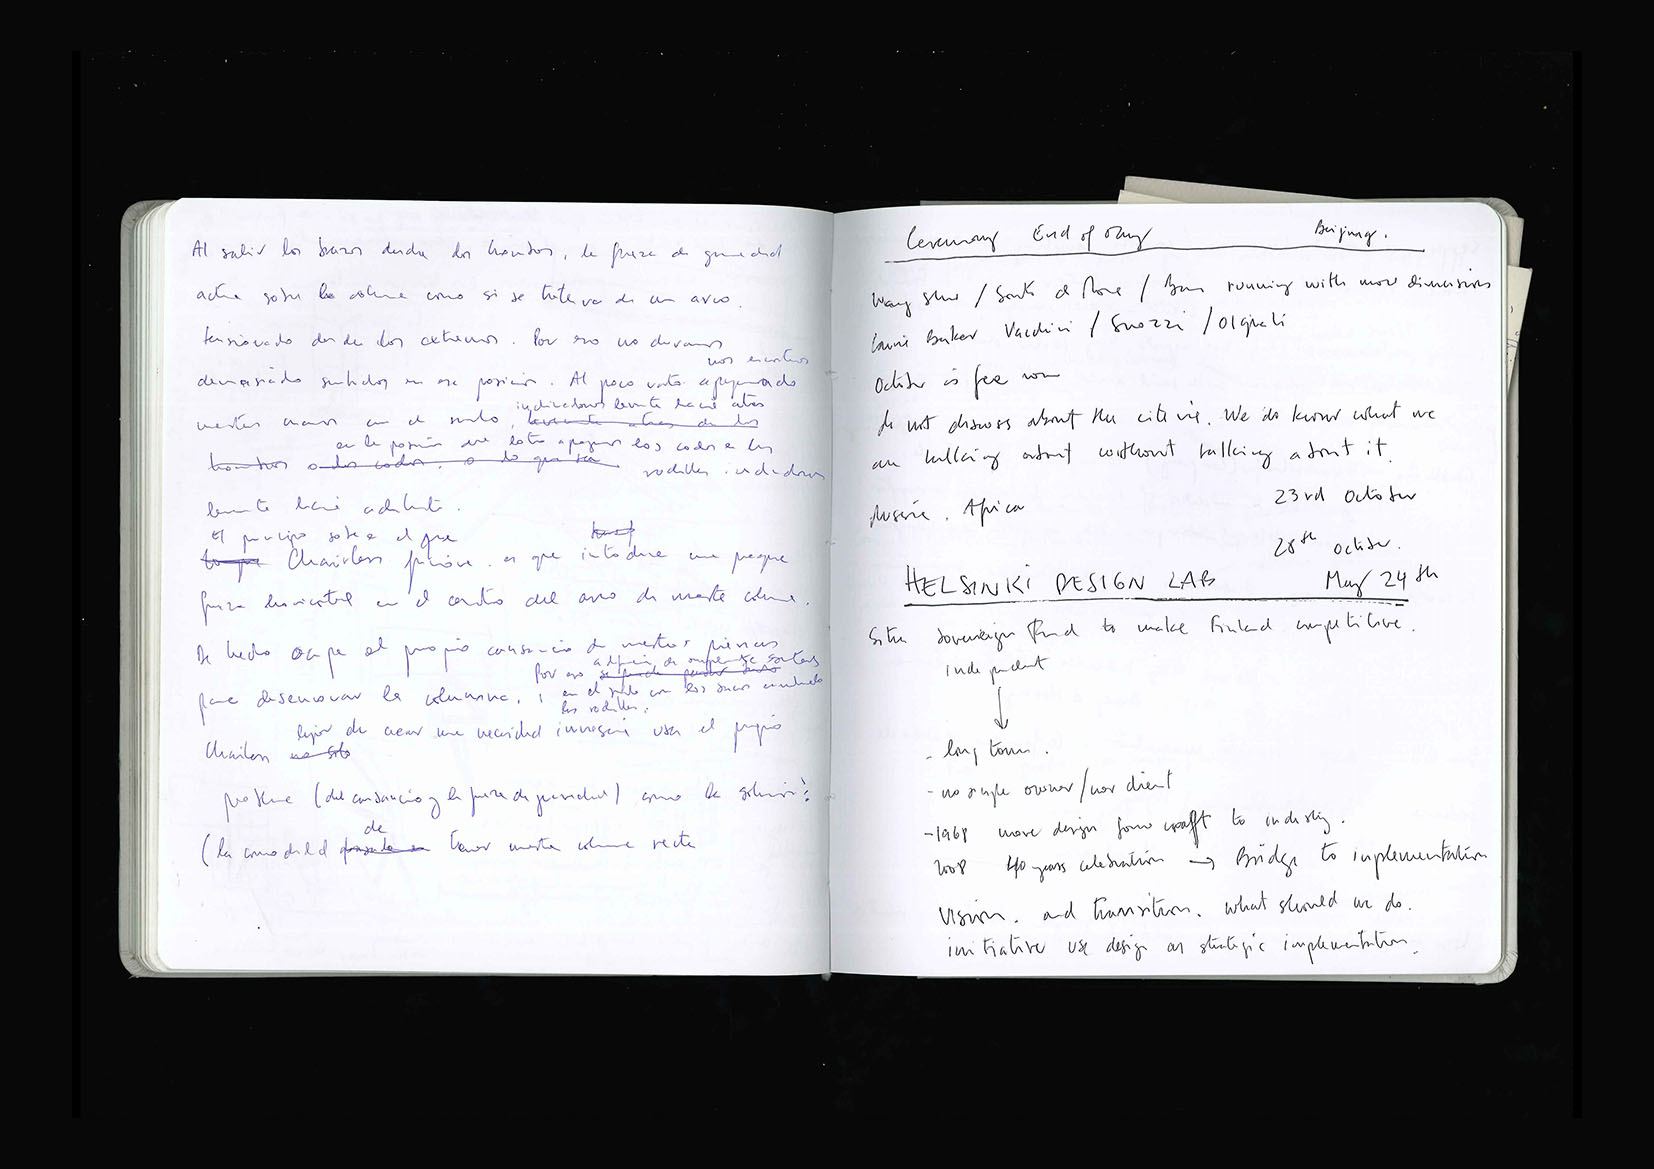 Al salir los brazos desde los hombros, la fuerza de gravedad
actua sobre la columna como si se tratara de un arco
tensionado desde los extremos. Por eso no duramos
demasiado sentados en esa posición. Al poco rato nos encontramos apoyando
nuestras manos en el suelo, inclinandonos levemente hacia atras
en la posición que los codos a las
rodillas inclinandonos
levemente hacia adelante.
El principio sobre el que
Chairless funciona, es que introduce una pequeña
fuerza horizontal en el centro del arco de nuestra columna.
De hecho ocupa el propio cansancio de nuestras piernas
para descansar la columna. Por eso
en el suelo con los brazos
las rodillas.
Chairless lejos de crear una necesidad innecesaria usa el propio
problema (del cansancio y la fuerza de gravedad) como la solución:
(la comodidad de tener nuestra columna recta
Ceremony End of May Beijing.
Wang Shu / / running with more dimensions
Laurie Baker Vacchini / Snozzi / Olgiati
October is
do not discuss about the criteria. We do know what we
are talking about without talking about it.
Africa 23rd October
28th October.
HELSINKI DESIGN LAB May 24th
Sitra sovereign fund to make Finland competitive.
independent
- long term.
- no single owner/nor client
- 1968 move design from craft to industry.
2008 40 years celebration → Bridge to implementation
Vision. and transition. what should we do.
initiative use design as strategic implementation.